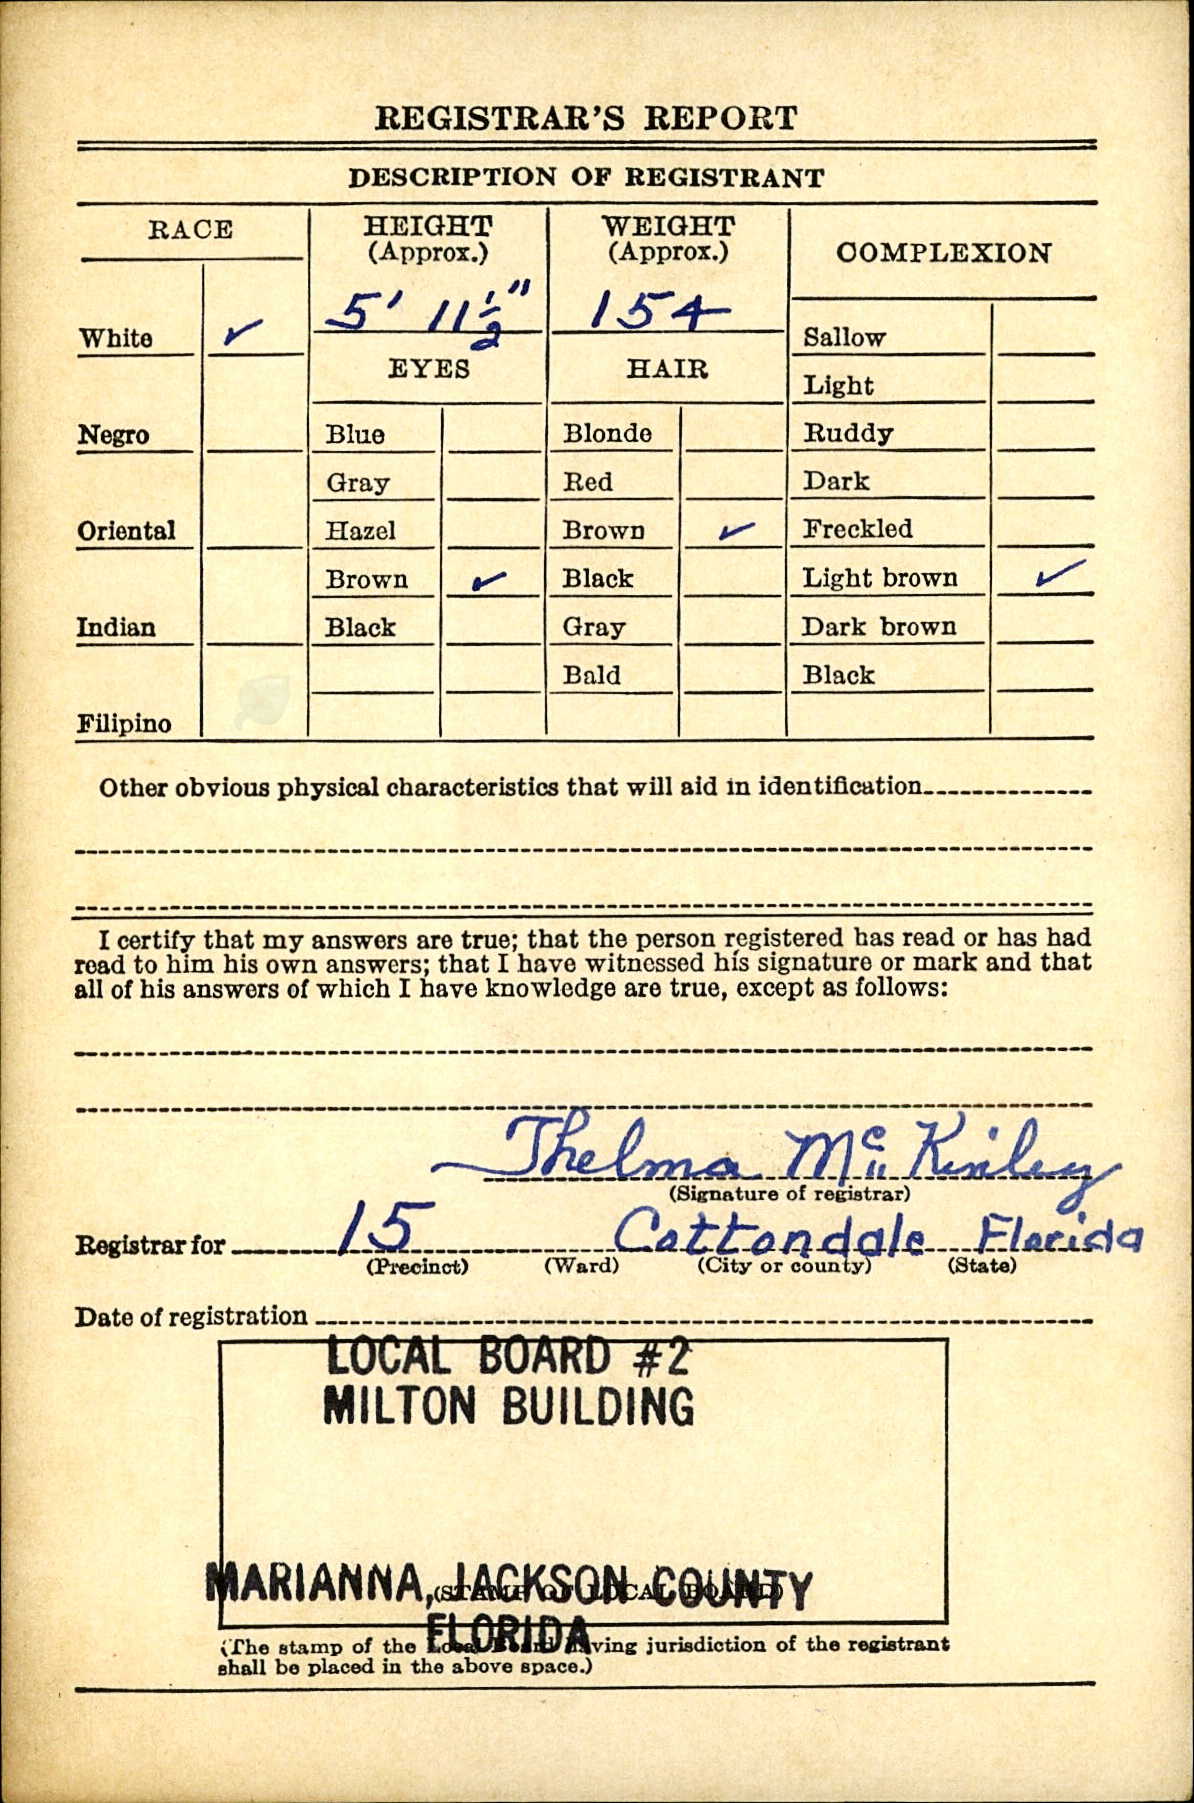 REGISTRAR'S REPORT
DESCRIPTION OF REGISTRANT
RACE
HEIGHT
(Approx.)
WEIGHT
(Approx.)
COMPLEXION
White ✓
5' 11½"
154
Sallow
EYES
HAIR
Light
Negro
Blue
Blonde
Ruddy
Gray
Red
Dark
Oriental
Hazel
Brown ✓
Freckled
Brown ✓
Black
Light brown ✓
Indian
Black
Gray
Dark brown
Bald
Black
Filipino
Other obvious physical characteristics that will aid in identification
I certify that my answers are true; that the person registered has read or has had
read to him his own answers; that I have witnessed his signature or mark and that
all of his answers of which I have knowledge are true, except as follows:
Thelma McKinley
(Signature of registrar)
Registrar for 15 Cottondale Florida
(Precinct) (Ward) (City or county) (State)
Date of registration
LOCAL BOARD #2
MILTON BUILDING
MARIANNA, JACKSON COUNTY
(STAMP OF LOCAL BOARD)
FLORIDA
(The stamp of the Local Board having jurisdiction of the registrant
shall be placed in the above space.)